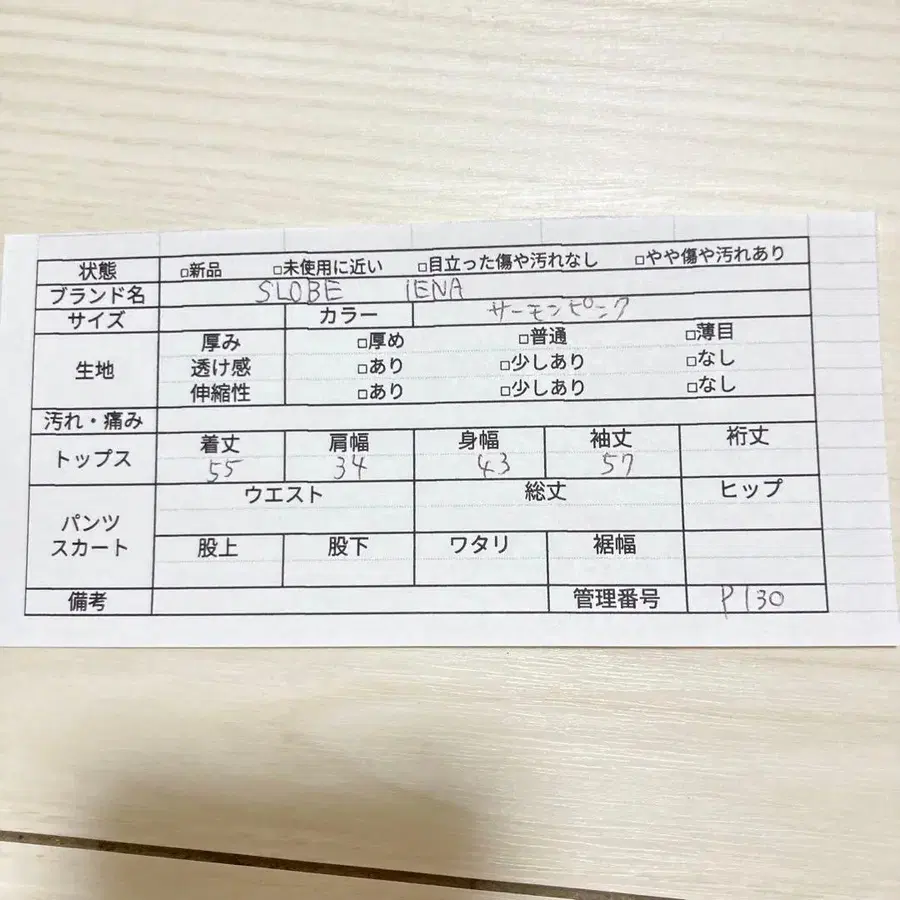 状態 □新品 □未使用に近い □目立った傷や汚れなし □やや傷や汚れあり
ブランド名 SLOBE IENA
サイズ カラー サーモンピンク
生地 厚み □厚め □普通 □薄目
透け感 □あり □少しあり □なし
伸縮性 □あり □少しあり □なし
汚れ・痛み
トップス 着丈 肩幅 身幅 袖丈 裄丈
55 34 43 57
パンツ スカート ウエスト 総丈 ヒップ
股上 股下 ワタリ 裾幅
備考 管理番号 P130